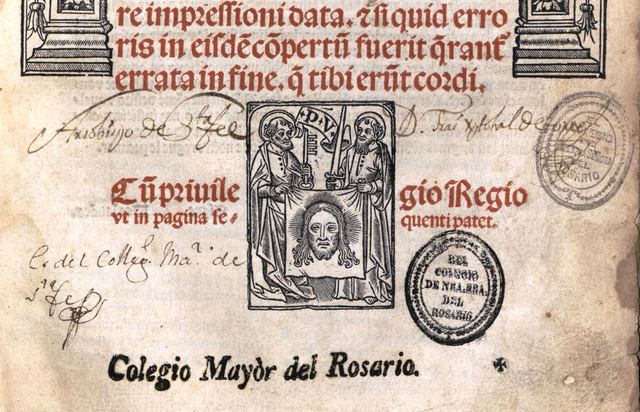 re impressioni data, & si quid erro
ris in eisdē cōpertū fuerit q̄rant̄
errata in fine, q̄ tibi erūt cordi.
P. V.
Arzobispo de Sta fee
D. Frai xptobal de torres
Cū priuile gio Regio
vt in pagina se- quenti patet.
Es del Colleg. Mar. de
Sta fee
DEL
COLEGIO
DE NRA. SRA.
DEL
ROSARIO
Colegio Mayòr del Rosario.
ROSARIO